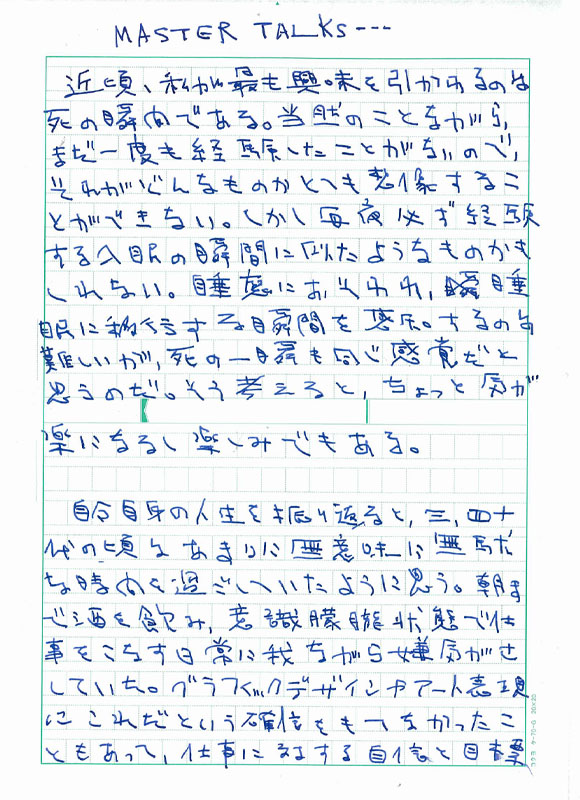 MASTER TALKS---
近頃、私が最も興味を引かれるのは
死の瞬間である。当然のことながら、
まだ一度も経験したことがないので、
それがどんなものかとても想像するこ
とができない。しかし毎夜必ず経験
する入眠の瞬間に似たようなものかも
しれない。睡魔におそわれ、睡
眠に移行する瞬間を感知するのは
難しいが、死の一瞬も同じ感覚だと
思うのだ。そう考えると、ちょっと気が
楽になるし楽しみでもある。
自分自身の人生を振り返ると、三、四十
代の頃はあまりに無意味に無駄
な時間を過ごしていたように思う。朝ま
で酒を飲み、意識朦朧状態で仕
事をこなす日常に我ながら嫌気がさ
していた。グラフィックデザインやアート表現
にこれだという確信をもてなかったこ
ともあって、仕事に対する自信と目標
コクヨ ケ-70-G 20×20